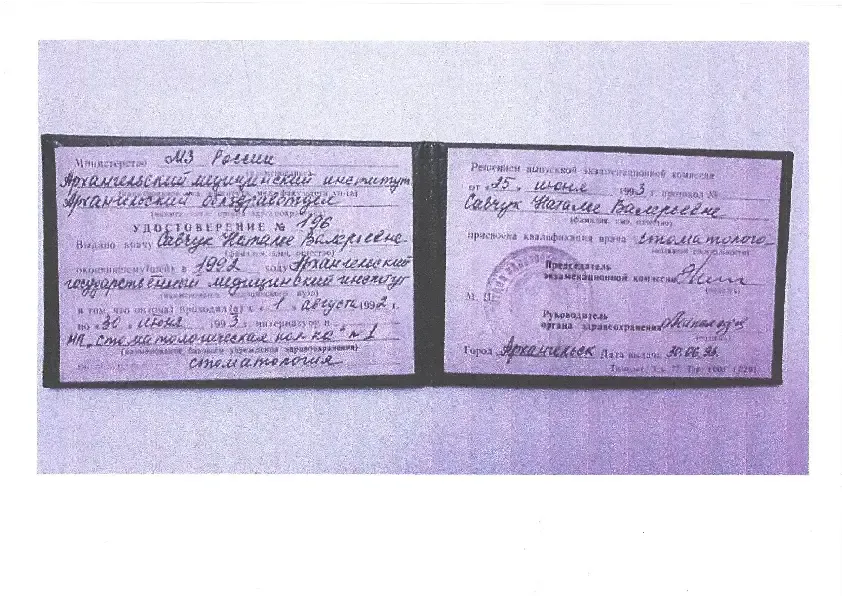 Министерство МЗ России
Архангельский медицинский институт
Архангельский облздравотдел
УДОСТОВЕРЕНИЕ № 196
Выдано врачу Савчук Наталье Валерьевне
окончившему(шей) в 1992 году Архангельский
государственный медицинский институт
в том, что он(она) проходил(а) с « 1 » августа 1992 г.
по « 30 » июня 1993 г. интернатуру в
МП „стоматологическая пол-ка" № 1
(наименование базового учреждения здравоохранения)
стоматология
Решением выпускной экзаменационной комиссии
от « 25 » июня 1993 г. протокол №
Савчук Наталье Валерьевне
(фамилия, имя, отчество)
присвоена квалификация врача стоматолога
Председатель
экзаменационной комиссии
М. П.
Руководитель
органа здравоохранения
Город Архангельск Дата выдачи 30.06.